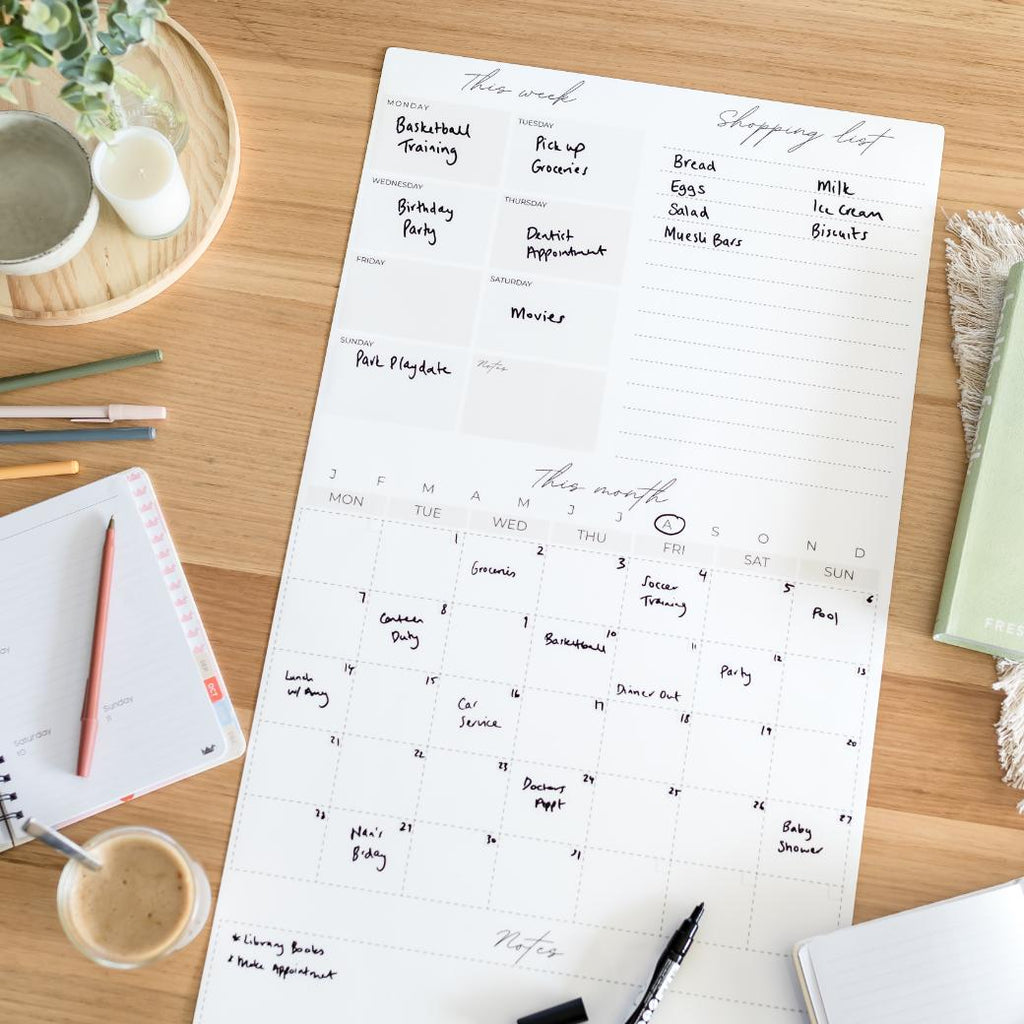 This week
MONDAY
Basketball
Training
TUESDAY
Pick up
Groceries
WEDNESDAY
Birthday
Party
THURSDAY
Dentist
Appointment
FRIDAY
SATURDAY
Movies
SUNDAY
Park Playdate
Notes
Shopping list
Bread
Eggs
Salad
Muesli Bars
Milk
Ice Cream
Biscuits
This month
J F M A M J J A S O N D
MON TUE WED THU FRI SAT SUN
1 2 3 4 5 6
Groceries
Soccer
Training
Pool
7 8 9 10 11 12 13
Canteen
Duty
Basketball
Dinner Out
Party
14 15 16 17 18 19 20
Lunch
w/ Amy
Car
Service
21 22 23 24 25 26 27
Doctors
Appt
Baby
Shower
28 29 30 31
Nan's
B'day
Notes
* Library Books
* Make Appointment
Saturday
10
Sunday
11
SEP
OCT
FRES